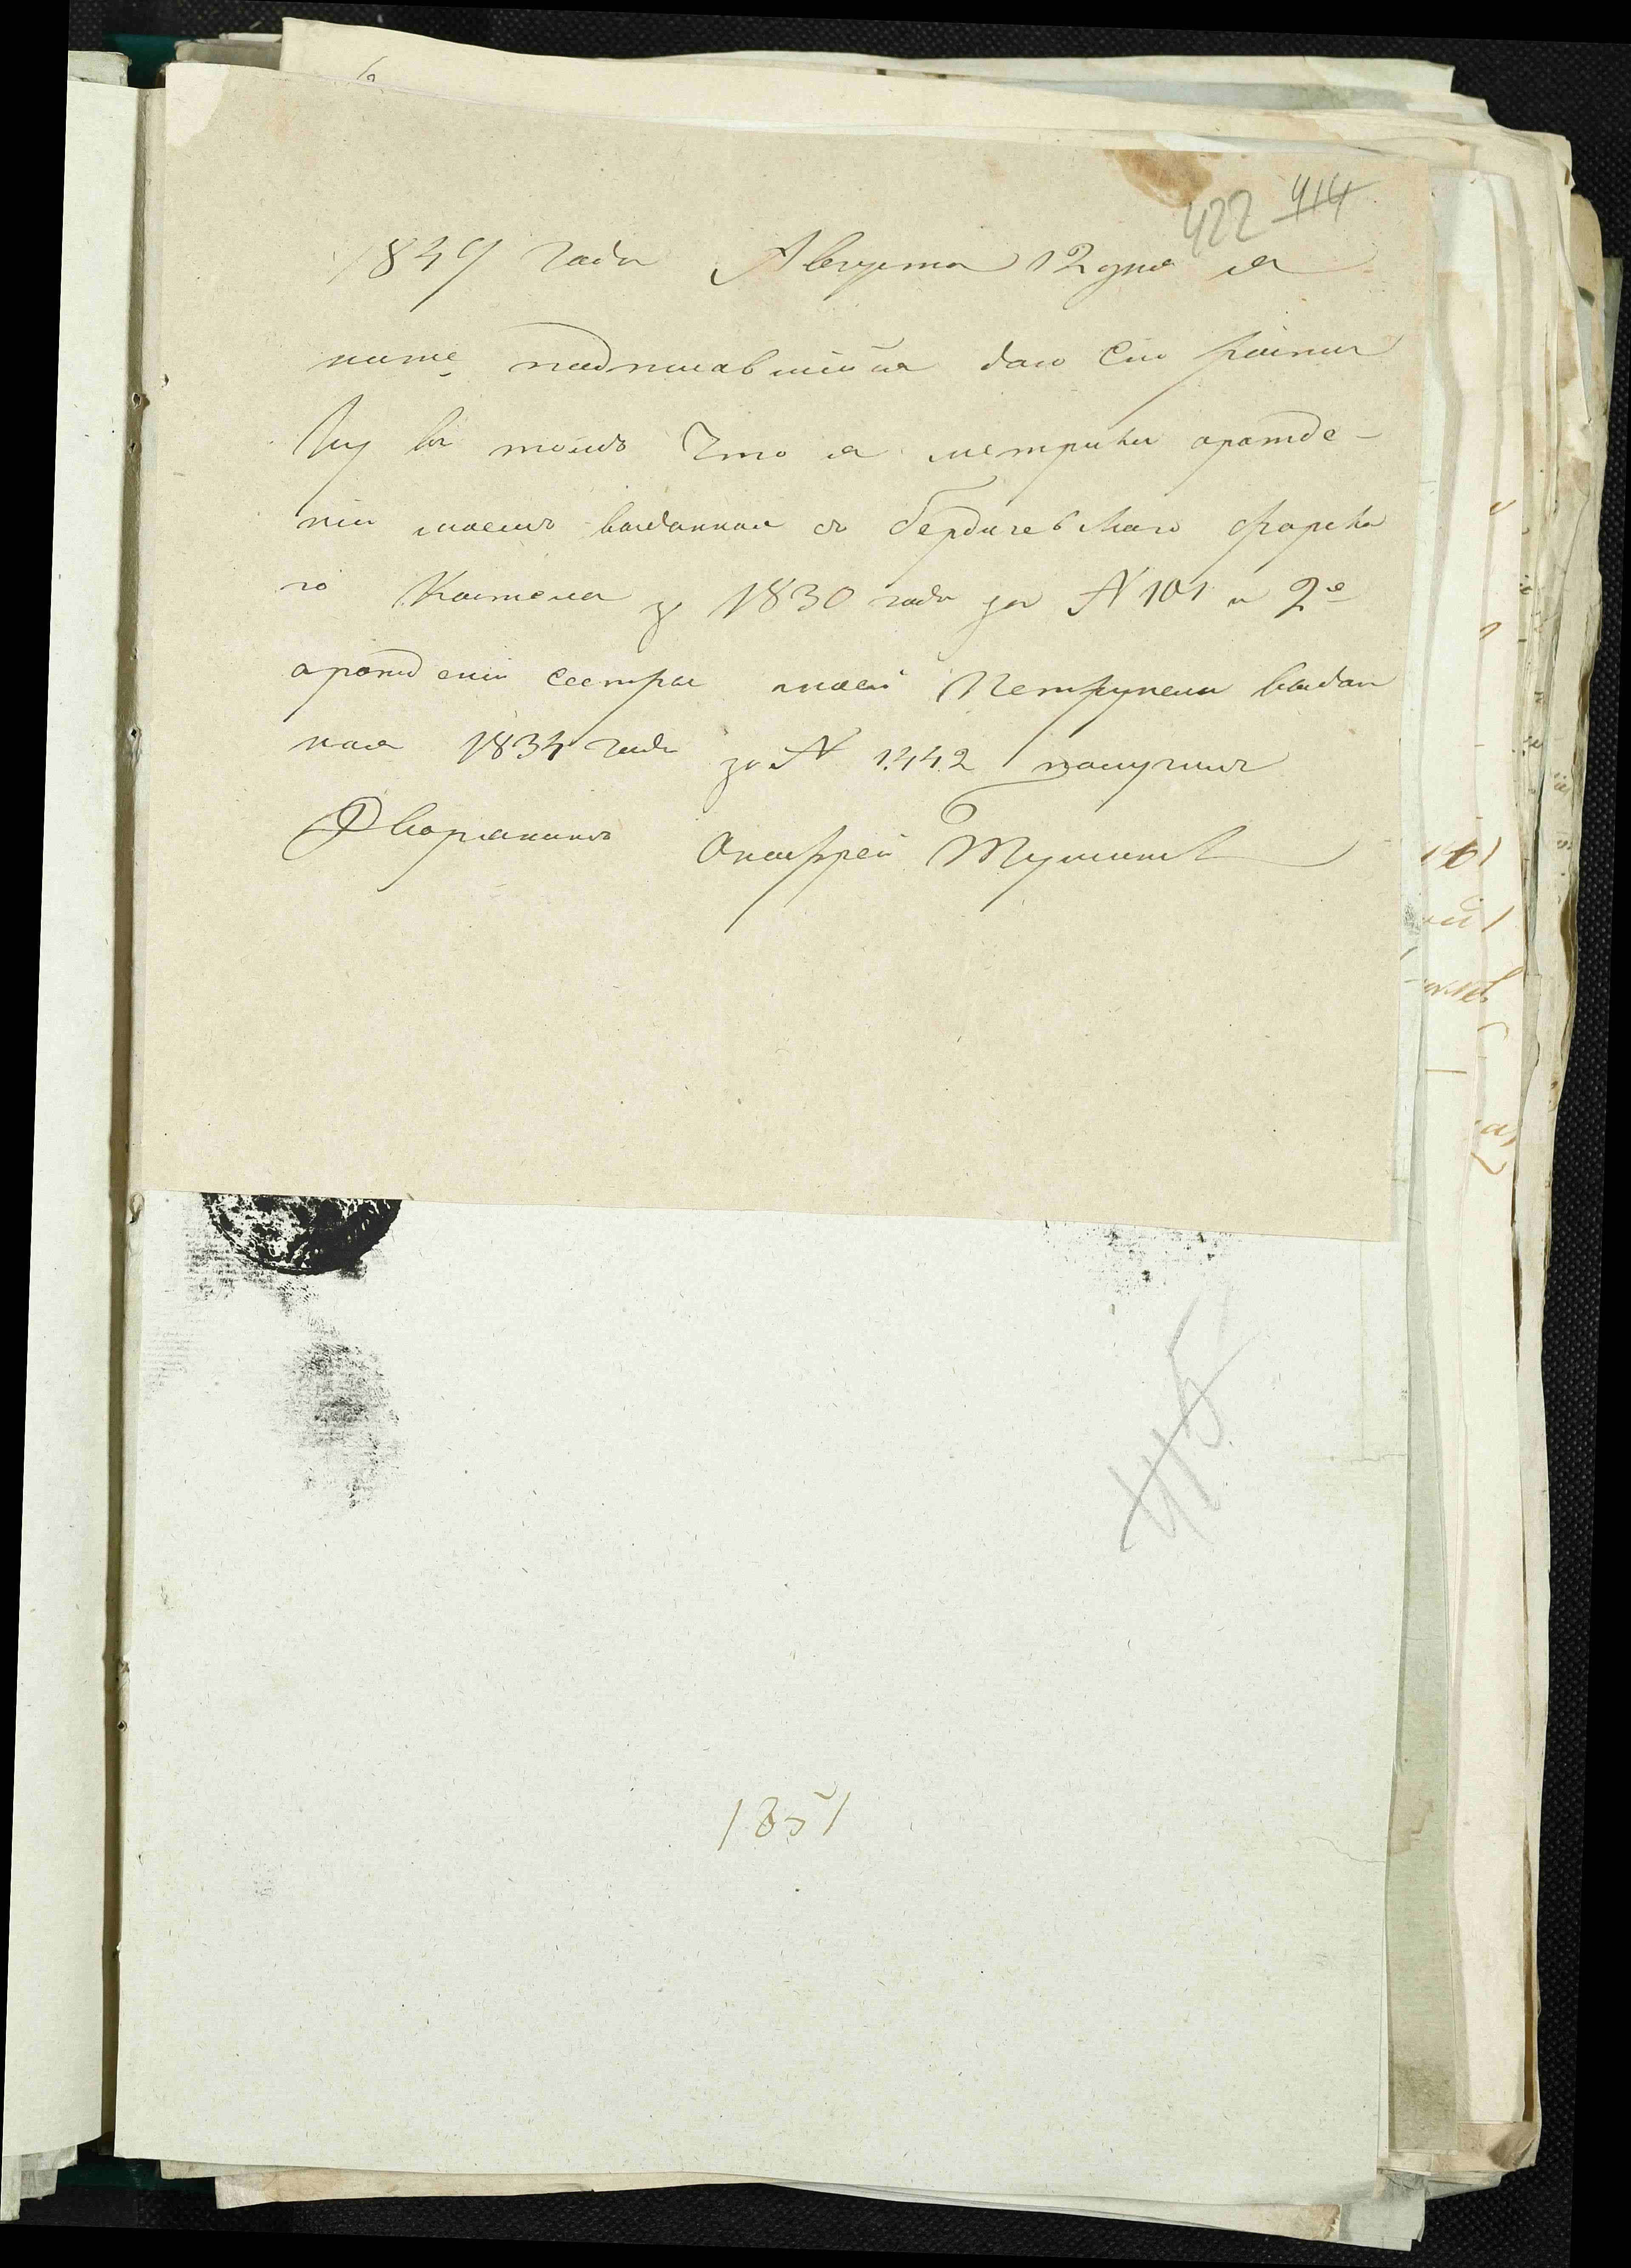 422 414
1847 года Августа 12 дня я
ниже подписавшийся даю сию распис
ку въ томъ что я метрики орожде-
нии моемъ выданная съ бердичевскаго фарска
го Костела з 1830 года за N 101 и 2е
орождении сестры моей Петрунели выдан
ная 1834 года за N 1442 получилъ
Дворянинъ Онофрей
415
1851